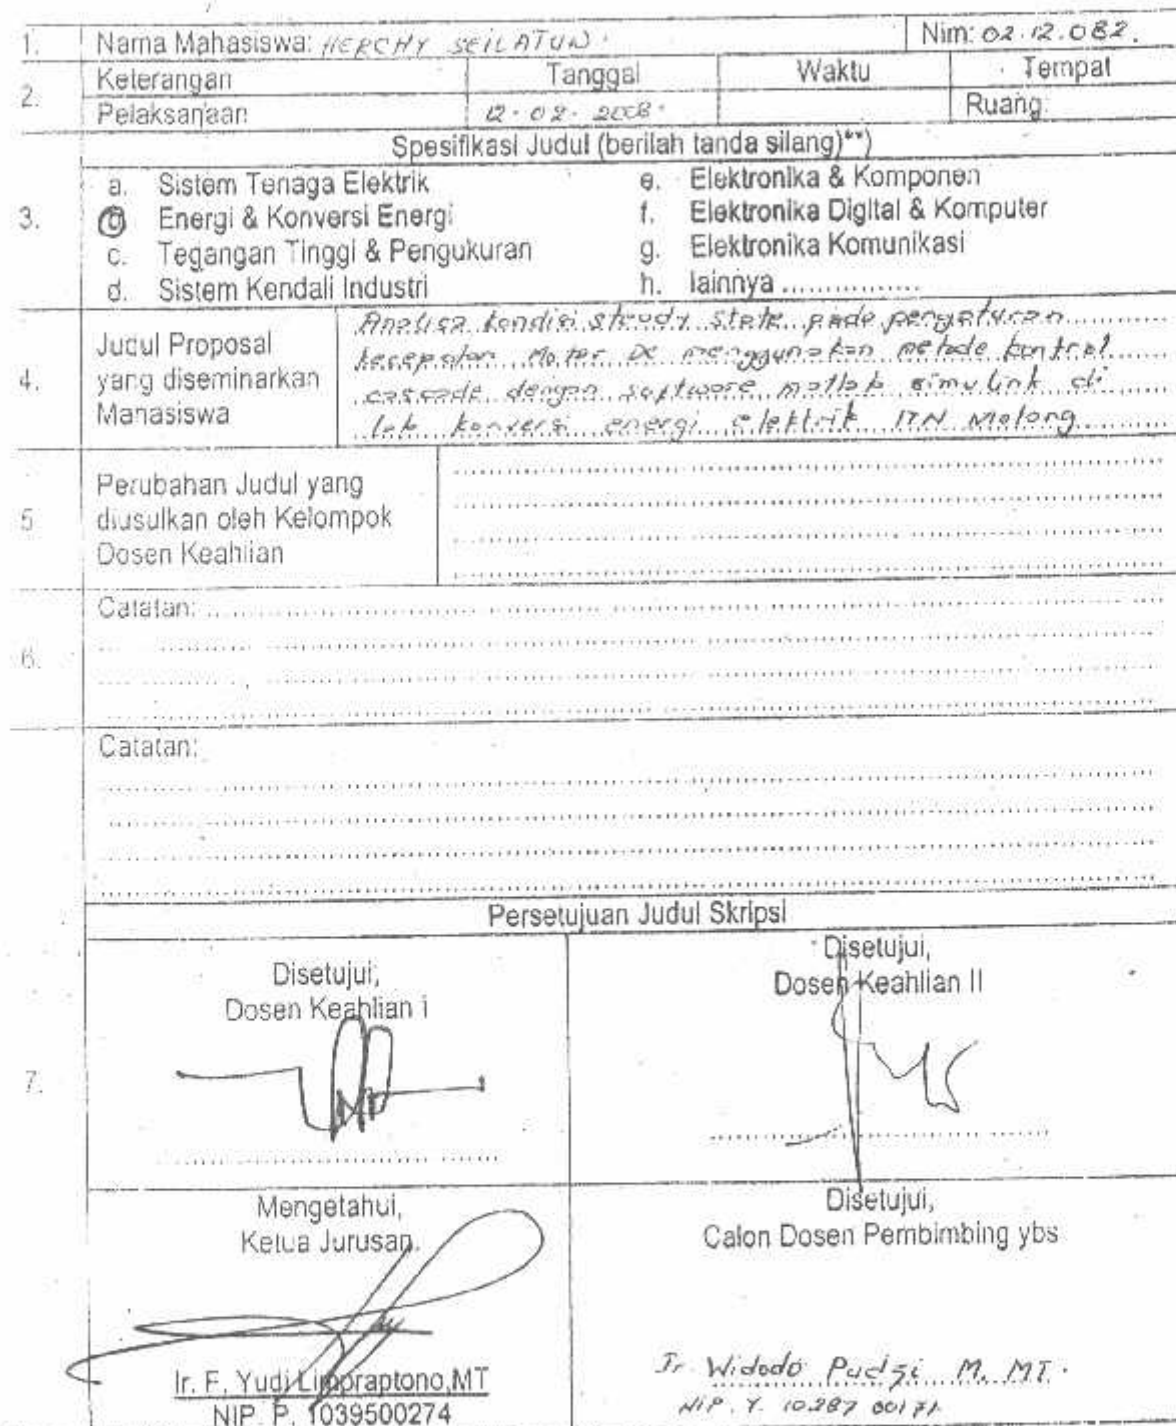 1. Nama Mahasiswa: HERCHY SEILATUW. Nim: 02.12.082.
2. Keterangan Pelaksanaan Tanggal Waktu Tempat
12-02-2008. Ruang:
3. Spesifikasi Judul (berilah tanda silang)**)
a. Sistem Tenaga Elektrik e. Elektronika & Komponen
b Energi & Konversi Energi f. Elektronika Digital & Komputer
c. Tegangan Tinggi & Pengukuran g. Elektronika Komunikasi
d. Sistem Kendali Industri h. lainnya ................
4. Judul Proposal yang diseminarkan Mahasiswa
Analisa kondisi steady state pada pengaturan
kecepatan Motor DC menggunakan metode kontrol
cascade dengan software matlab simulink di
lab konversi energi elektrik ITN Malang
5 Perubahan Judul yang
diusulkan oleh Kelompok
Dosen Keahlian
6. Catatan:
Catatan:
Persetujuan Judul Skripsi
7. Disetujui,
Dosen Keahlian I
Disetujui,
Dosen Keahlian II
Mengetahui,
Ketua Jurusan.
Ir. F. Yudi Limpraptono,MT
NIP. P. 1039500274
Disetujui,
Calon Dosen Pembimbing ybs
Ir. Widodo Pudji M. MT.
NIP. Y. 10287 00171